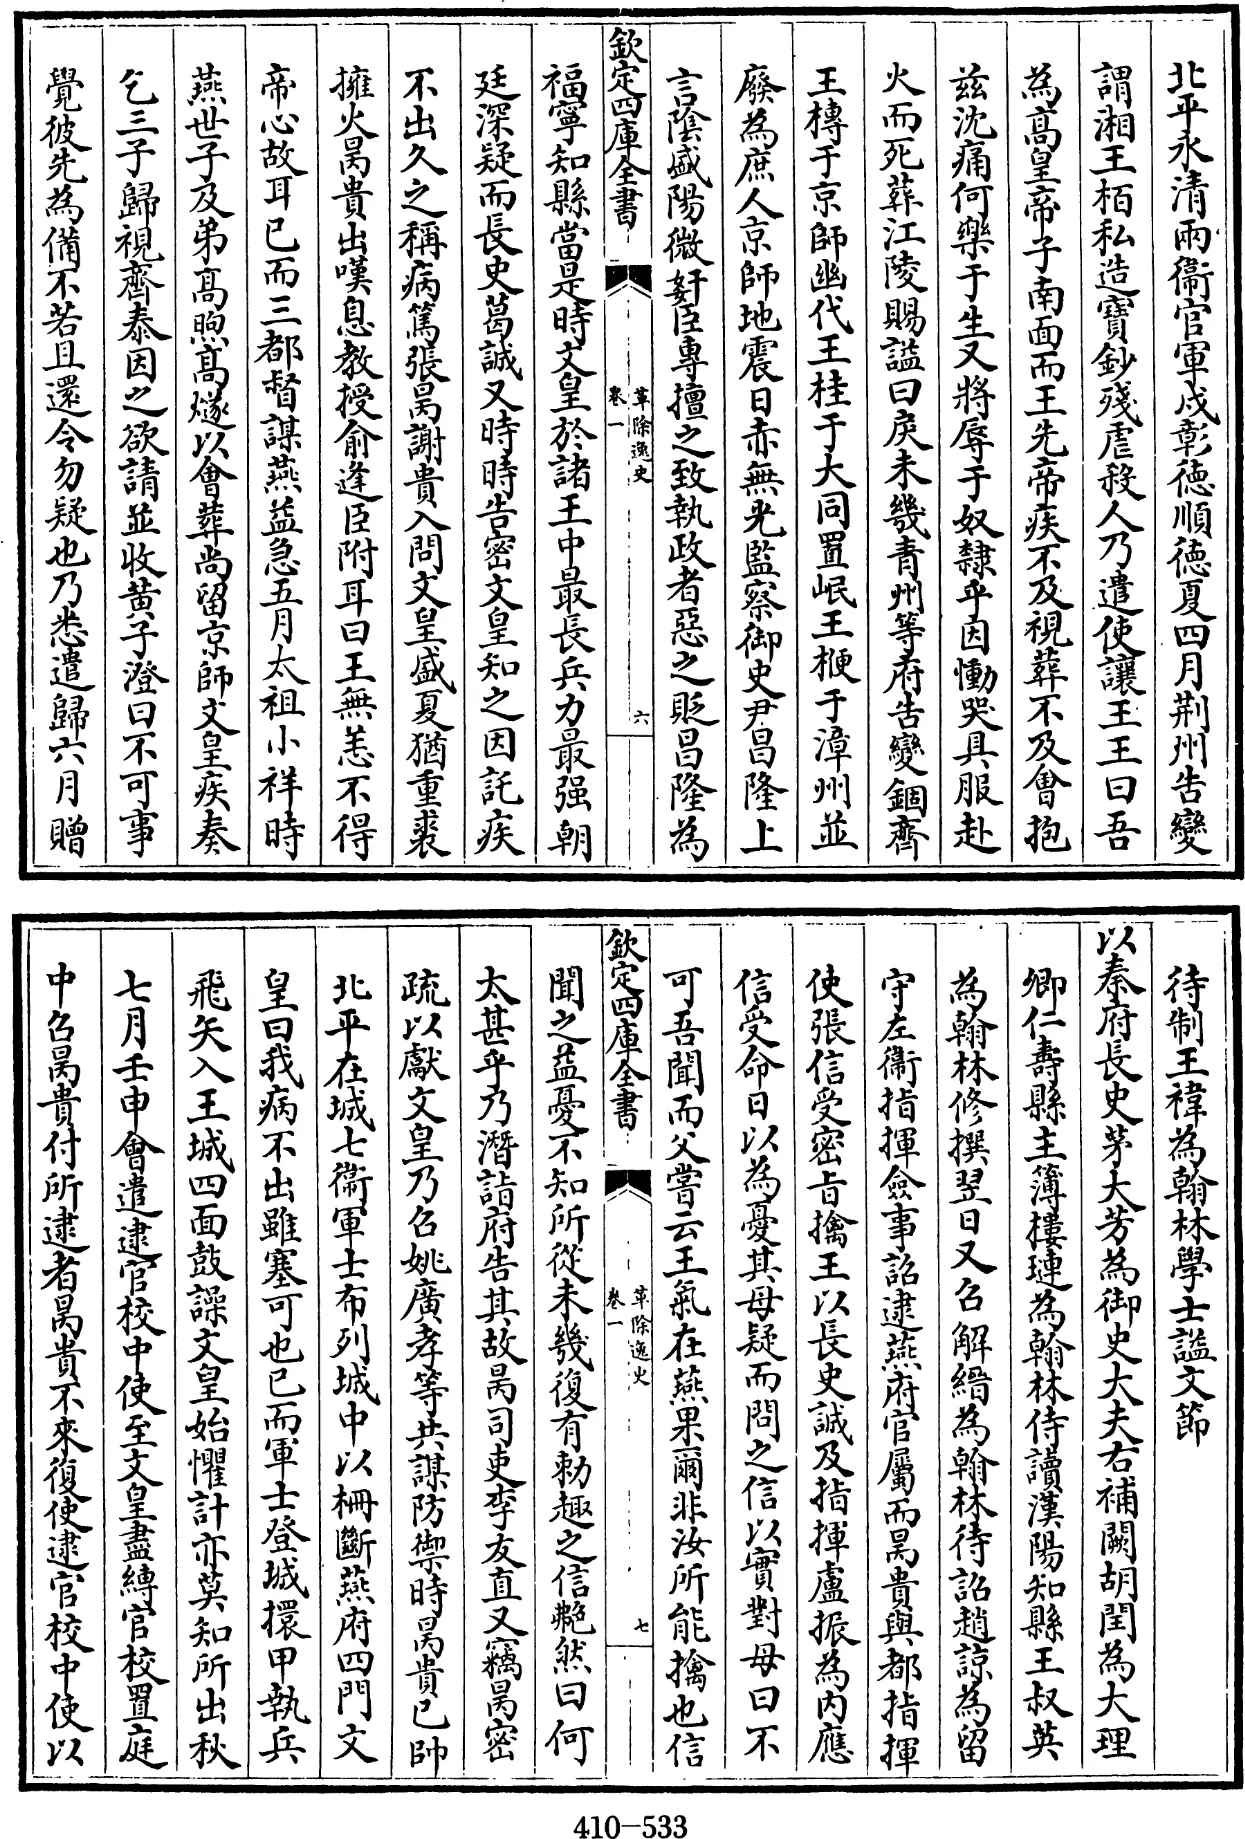 北平永清兩衞官軍戍彰德順德夏四月荆州告變
謂湘王栢私造寶鈔殘虐殺人乃遣使讓王王曰吾
為髙皇帝子南面而王先帝疾不及視葬不及㑹抱
兹沈痛何樂于生又將辱于奴隸乎因慟哭具服赴
火而死葬江陵賜諡曰戾未幾青州等府告變錮齊
王榑于京師幽代王桂于大同置岷王楩于漳州並
廢為庶人京師地震日赤無光監察御史尹昌隆上
言陰盛陽微奸臣專擅之致執政者惡之貶昌隆為
欽定四庫全書
革除逸史
卷一
六
福寧知縣當是時文皇於諸王中最長兵力最强朝
廷深疑而長史葛誠又時時告密文皇知之因託疾
不出久之稱病篤張昺謝貴入問文皇盛夏猶重裘
擁火昺貴出嘆息教授俞逢臣附耳曰王無恙不得
帝心故耳已而三都督謀燕益急五月太祖小祥時
燕世子及弟髙煦髙燧以㑹葬尚留京師文皇疾奏
乞三子歸視齊泰因之欲請並收黄子澄曰不可事
覺彼先為備不若且還令勿疑也乃悉遣歸六月贈
待制王禕為翰林學士諡文節
以秦府長史茅大芳為御史大夫右補闕胡閏為大理
卿仁壽縣主簿樓璉為翰林侍讀漢陽知縣王叔英
為翰林修撰翌日又召解縉為翰林待詔趙諒為留
守左衞指揮僉事詔逮燕府官屬而昺貴與都指揮
使張信受密旨擒王以長史誠及指揮盧振為内應
信受命日以為憂其母疑而問之信以實對母曰不
可吾聞而父嘗云王氣在燕果爾非汝所能擒也信
欽定四庫全書
革除逸史
卷一
七
聞之益憂不知所從未幾復有勅趣之信艴然曰何
太甚乎乃潛詣府告其故昺司吏李友直又竊昺密
疏以獻文皇乃召姚廣孝等共謀防禦時昺貴已帥
北平在城七衞軍士布列城中以柵斷燕府四門文
皇曰我病不出雖塞可也已而軍士登城擐甲執兵
飛矢入王城四面鼓譟文皇始懼計亦莫知所出秋
七月壬申㑹遣逮官校中使至文皇盡縛官校置庭
中召昺貴付所逮者昺貴不來復使逮官校中使以
410—533